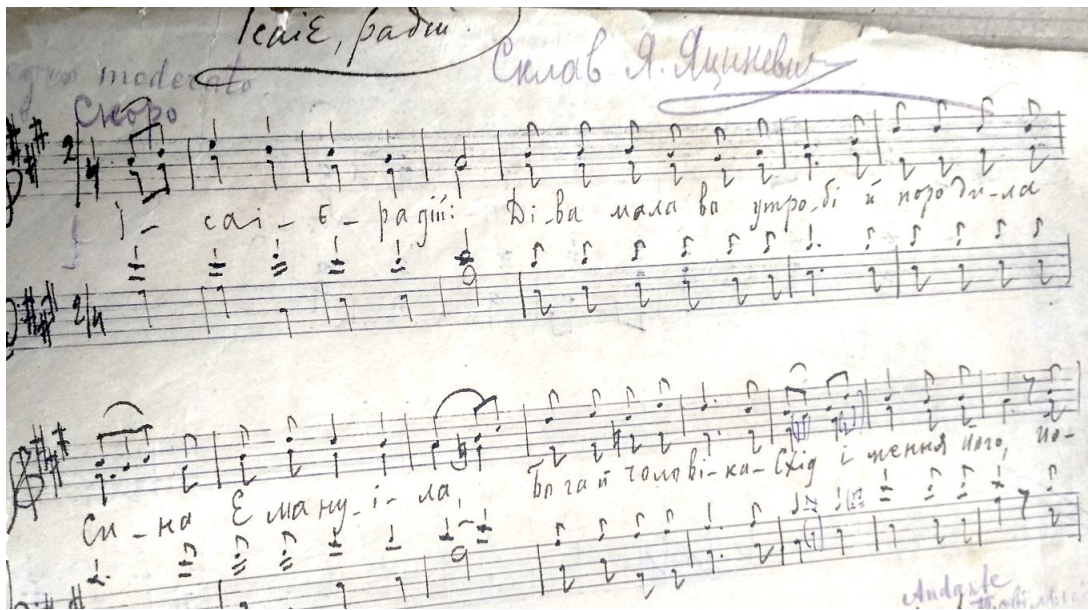 Ісаіє, радій.
Склав Я. Яциневич
moderato
Скоро
2/4
І - саі - є - радій: Ді-ва мала во утро-бі й породи-ла
2/4
Си-на Є ману-і-ла, Бога й чолові-ка-Схід і мення його, по-
Andante